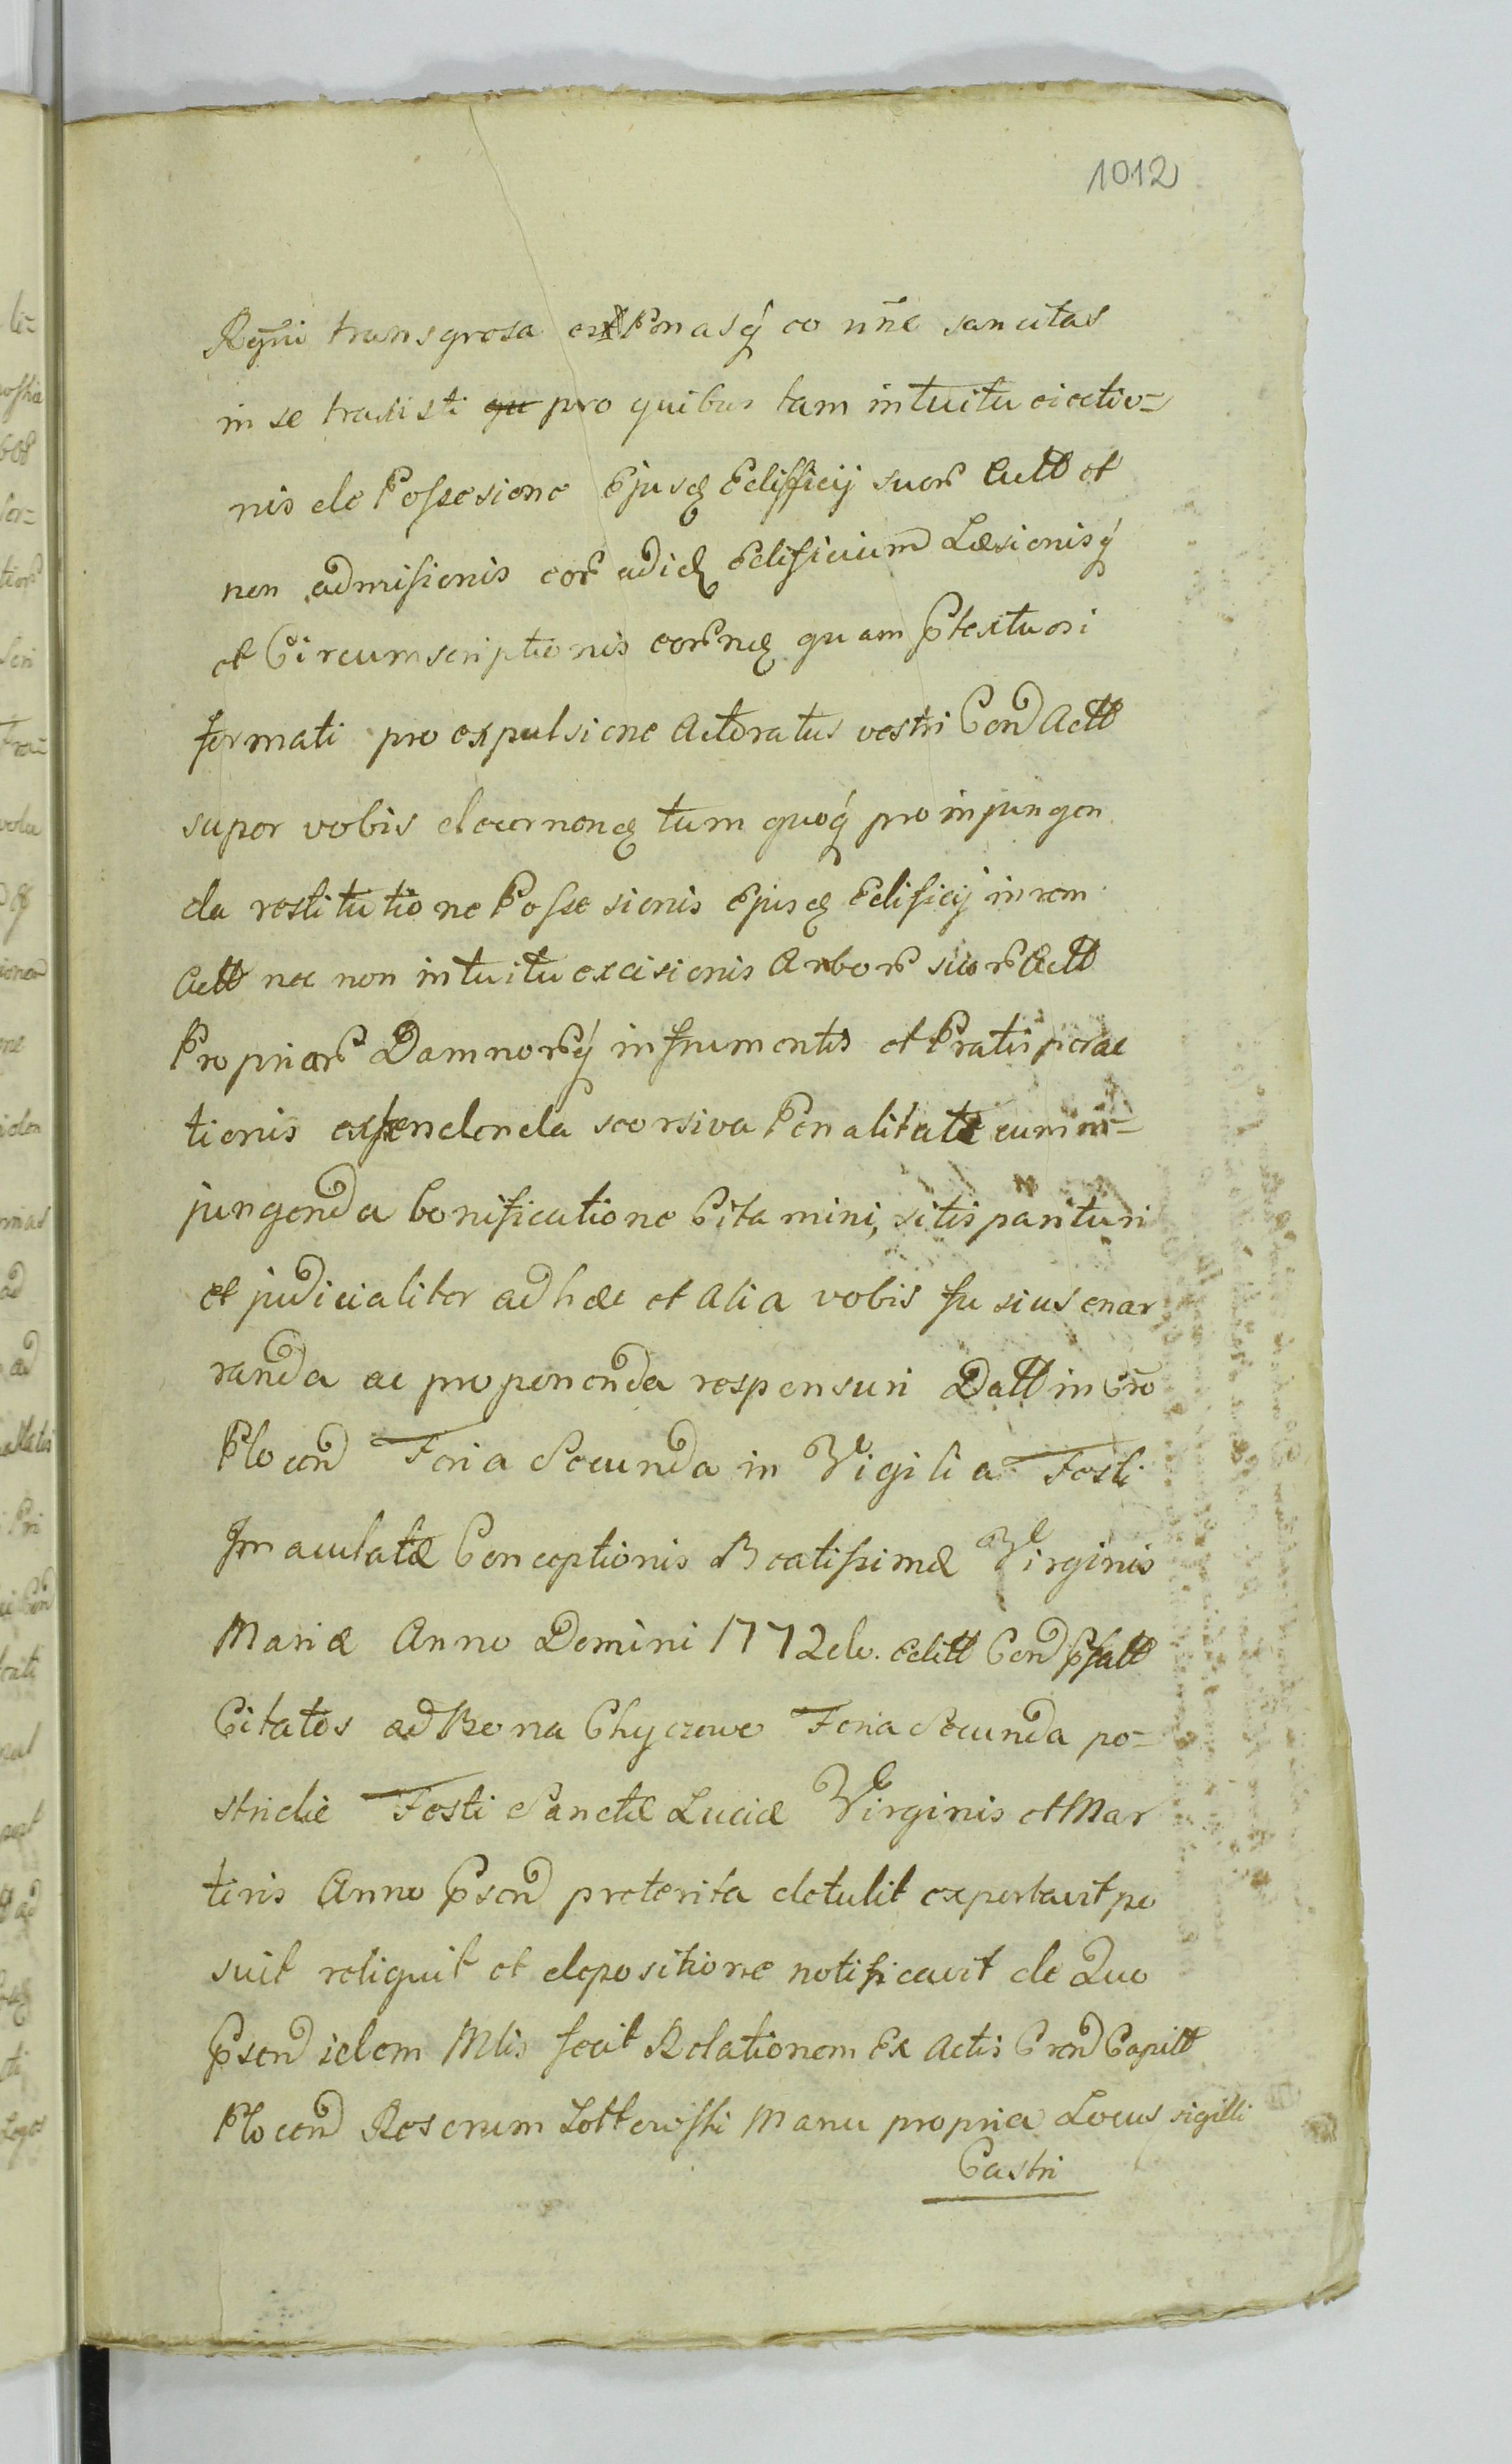 1012
Regni transgresa est Penasq́ eo nn̄e sancitas
in se traxisti pro quibus tam intuitu eiectio-
nis de Possesione Ejusq Edifficij suor Actt et
non admissionis eor adid Edificium Læsionisq́
et Circumscriptionis eorndq quam Ptextuosi
formati pro expulsione Actoratus vestri Cond Actt
super vobis decernendq tum quoq́ pro injungen
da restitutione Possesionis Ejusdq Edificij in rem
Actt nec non intuitu excisionis Arbor suor Actt
Propriar Damnorq́ in frumentis et Pratis
tionis extendenda seorsiva Penalitate cum in-
jungenda bonificatione Citamini, sitis parituri
et judicialiter ad hæc et Alia vobis fusius enar
randa ac proponenda responsuri Datt in Cro
Plocen Feria Secunda in Vigilia Festi
Jmaculatæ Conceptionis Beatissimæ Virginis
Mariæ Anno Domini 1772do. Editt Cond Psatt
Citatos ad Bona Chyczewo Feria Secunda po-
stridie Festi Sanctæ Luciæ Virginis et Mar
tiris Anno Psend preterita detulit exportavit po
suit reliquit et depositione notificavit de Quo
Psend idem Mlis fecit Relationem Ex Actis Crend Capitt
Plocend Reserum Manu propria Locus sigilli
Castri